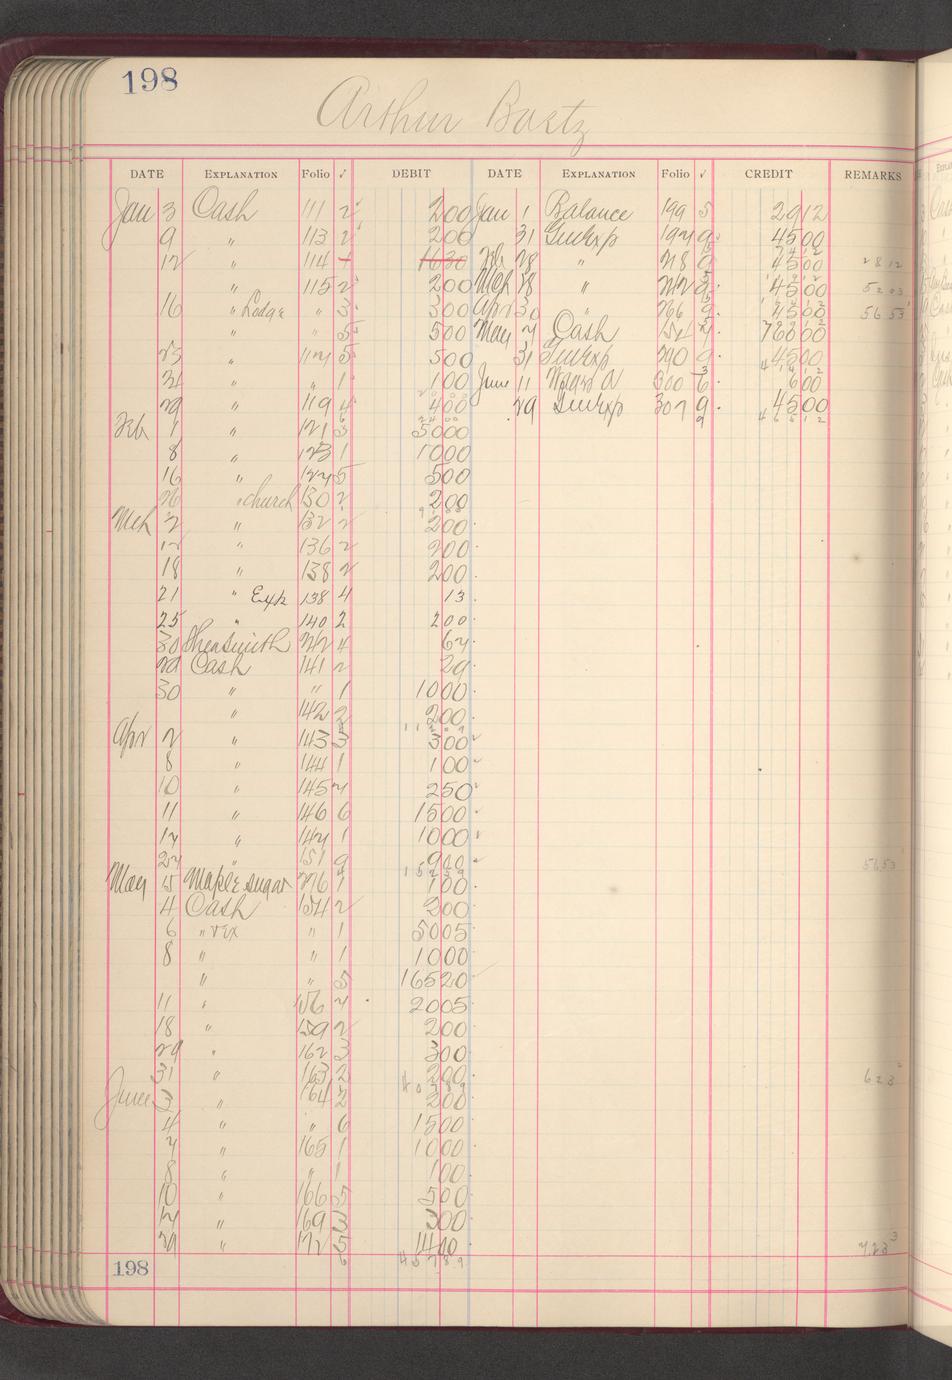 198
Arthur Bastz
DATE EXPLANATION Folio √ DEBIT DATE EXPLANATION Folio √ CREDIT REMARKS
Jan 3 Cash 111 2 200 Jan 1 Balance 199 5 2912
9 " 113 2 200 31 GenExp 197 9 4500
12 " 114 1 1030 Feb 28 " 218 9 4500 2812
" 115 2 200 Mch 18 " 242 9 4500 5203
16 " Lodge " 3 300 Apr 30 " 266 9 4500 5653
" " 5 500 May 7 Cash 154 7 78000
25 " 117 5 500 31 GenExp 290 9 4500
31 " " 1 100 June 11 300 6 600
29 " 119 4 400 29 GenExp 307 9 4500
Feb 1 " 121 3 5000
8 " 123 1 1000
16 " 127 5 500
26 " church 130 2 200
Mch 2 " 132 2 200
12 " 136 2 200
18 " 138 2 200
21 " Exp 138 4 13
25 " 140 2 200
30 242 4 67
29 Cash 141 2 29
30 " " 1 1000
" 142 2 200
Apr 2 " 143 3 300
8 " 144 1 100
10 " 145 7 250
11 " 146 6 1500
17 " 147 1 1000
27 " 151 9 900 5653
May 5 Maple sugar 276 1 100
4 Cash 154 2 200
6 " " 1 5005
8 " " 1 1000
" " 5 16520
11 " 156 7 2005
18 " 159 2 200
29 " 162 3 300
31 " 163 2 200 623
June 3 " 164 2 200
4 " " 6 1500
7 " 165 1 1000
8 " " 1 100
10 " 166 5 500
17 " 169 3 300
29 " 172 5 1440 7233
198 45789